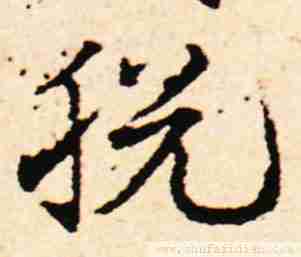 税
www.shufazidian.com